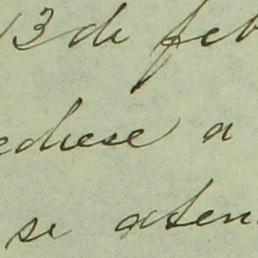 13 de feb
ediese a
se aten